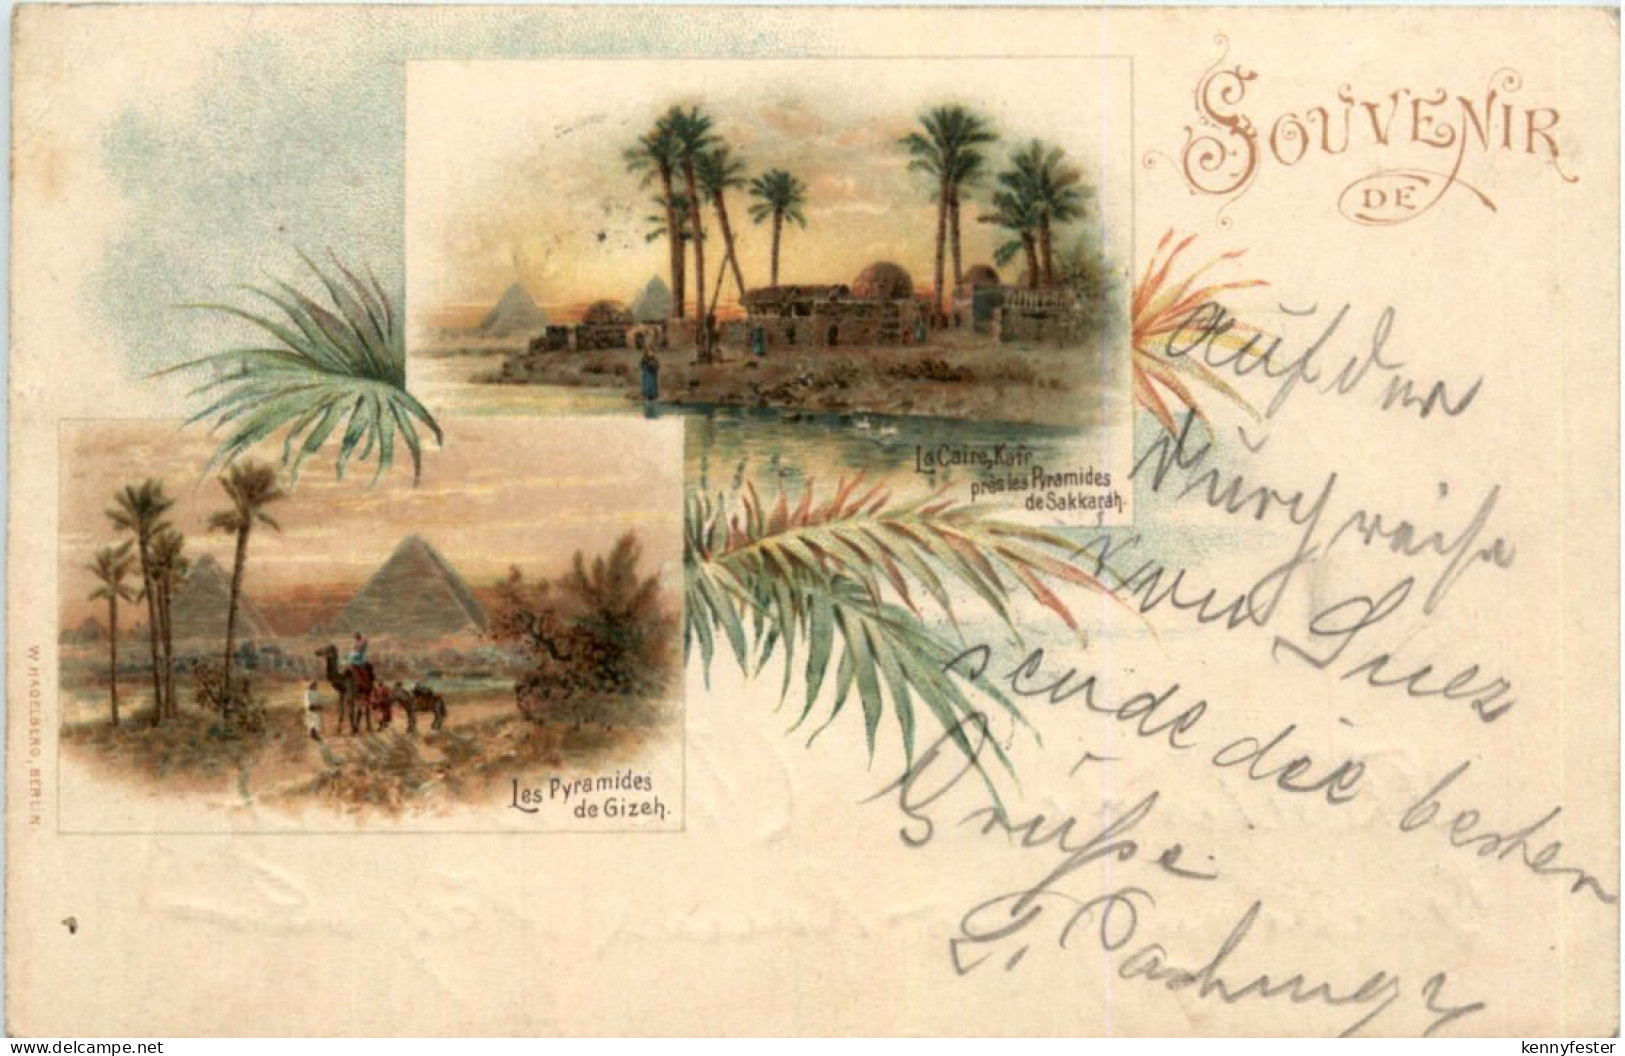 SOUVENIR
DE
La Caire, Kafr
près les Pyramides
de Sakkarah.
Les Pyramides
de Gizeh.
W. HAGELBERG, BERLIN.
Auf der
Durchreise
von Suez
sende die besten
Grüße
delcampe.net
kennyfester